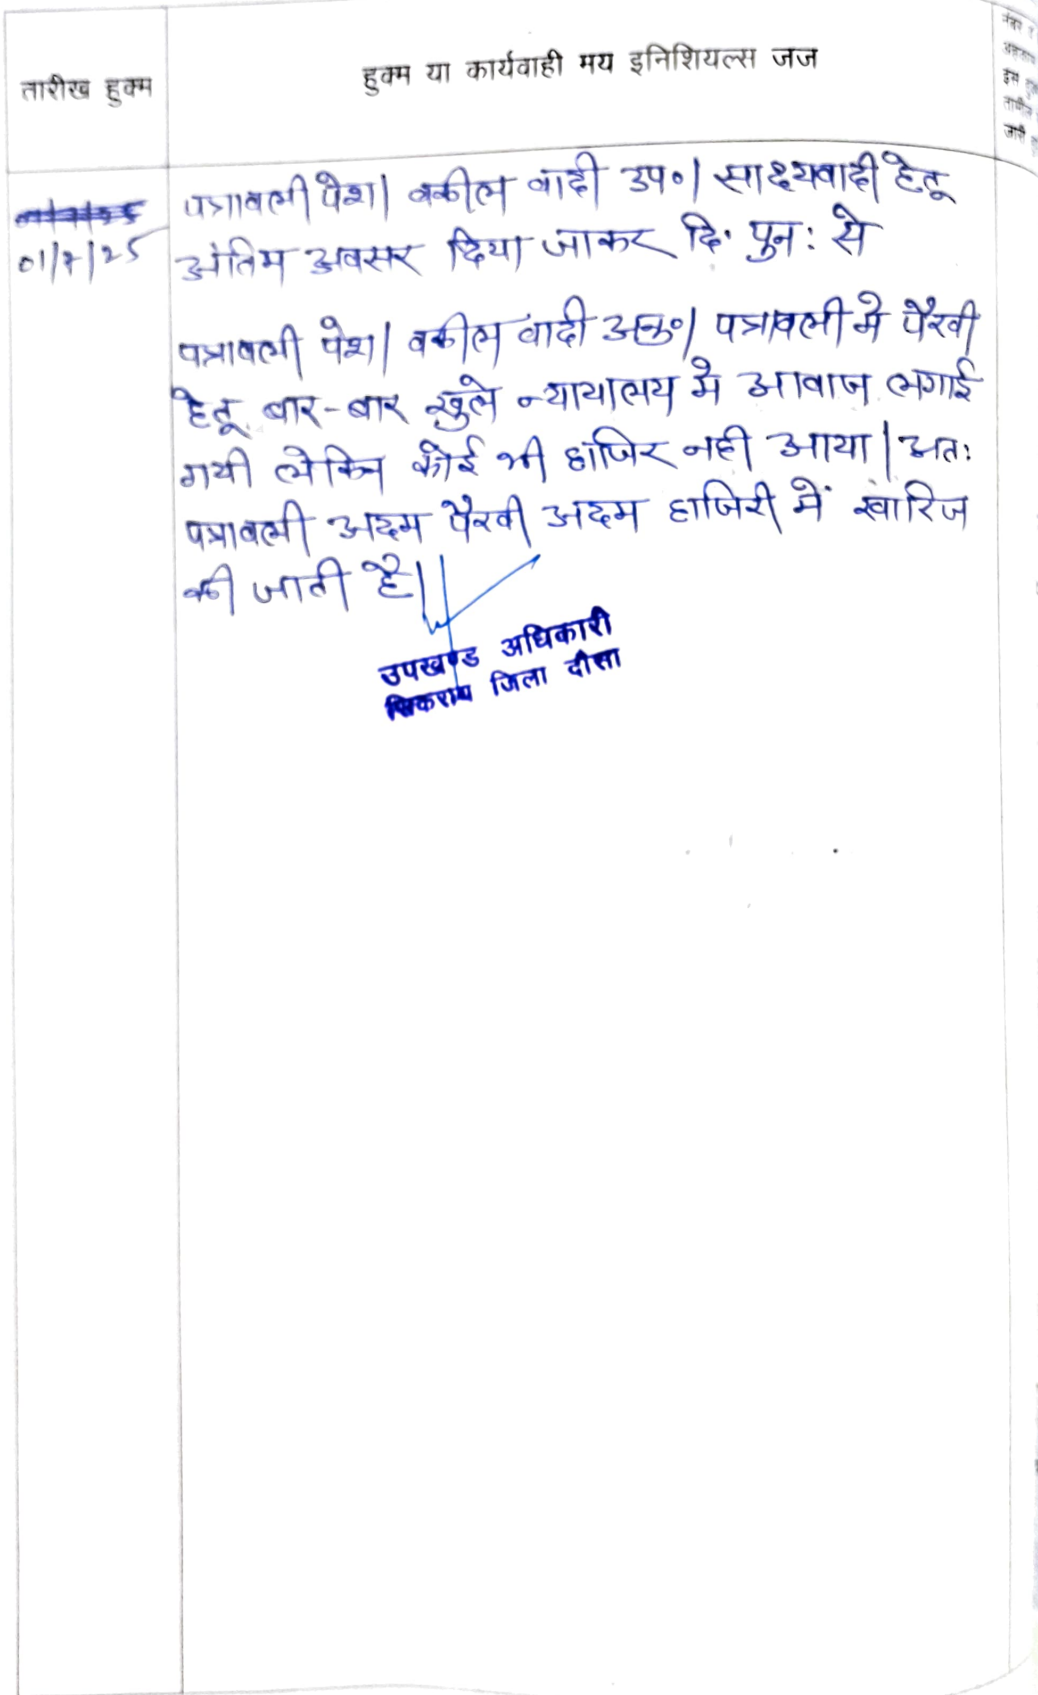 तारीख हुक्म
हुक्म या कार्यवाही मय इनिशियल्स जज
01/7/25
पत्रावली पेश। वकील वादी उप०। साक्ष्यवादी हेतू
अंतिम अवसर दिया जाकर दि. पुन: से
पत्रावली पेश। वकील वादी अनु०। पत्रावली मे पैरवी
हेतू बार-बार खुले न्यायालय मे आवाज लगाई
गयी लेकिन कोई भी हाजिर नही आया। अत:
पत्रावली अदम पैरवी अदम हाजिरी में खारिज
की जाती है।
उपखण्ड अधिकारी
सिकराय जिला दौसा